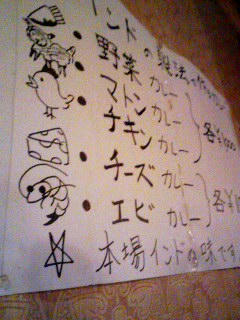 インドの
野菜カレー
マトンカレー
チキンカレー
各¥
チーズカレー
エビカレー
各¥
本場インドの味です